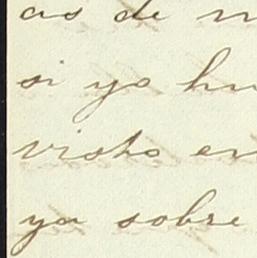 as de
si yo hu
visto en
ya sobre